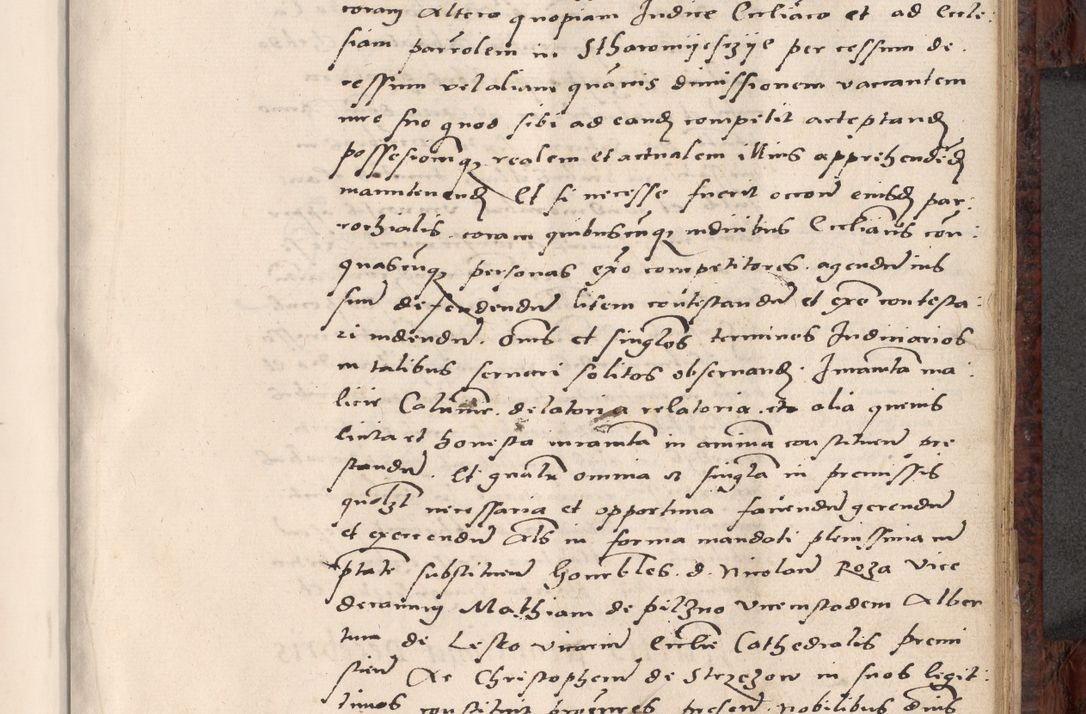 coram Altero quopiam Judice Eccliastico et ad Eccle:
siam parrolem in Stharomyesizye per cessum de
cessum vel aliam quamis dimissionem vaccantem
iure suo quod sibi ad eandem competit acceptandum
possesionemque realem et actualem illius apprehendendum
manutenendum Et si necesse fuerit occone eiusdem par:
rochialis coram quibuscunque iudicibus Eccliasticis con:
quascunque personas competitores agendum ius
suum defendendum litem contestandum et contesta:
ri videndum. Omes et singlos terminos Judiciarios
in talibus servari solitos observandum. Juramenta ma:
licie Calumnie. delatoria relatoria. alia quevis
licita et honesta iuramenta in animam constituentis pre
standum. Et gnalia omnia et singla in premissis
quolibet necessaria et opportuna faciendum gerendum
et exercendum Als in forma mandati plenissima cum
ptate substituendi honorables. d. Nicolaum Roza Vice
decanum Mathiam de pilzno vicecustodem Alber
tum de Lesto vicarium Ecclie Cathedralis premi
slien Ac Christopherum de Strzezow in suos legit:
timos constituit presen nobilibus dnis